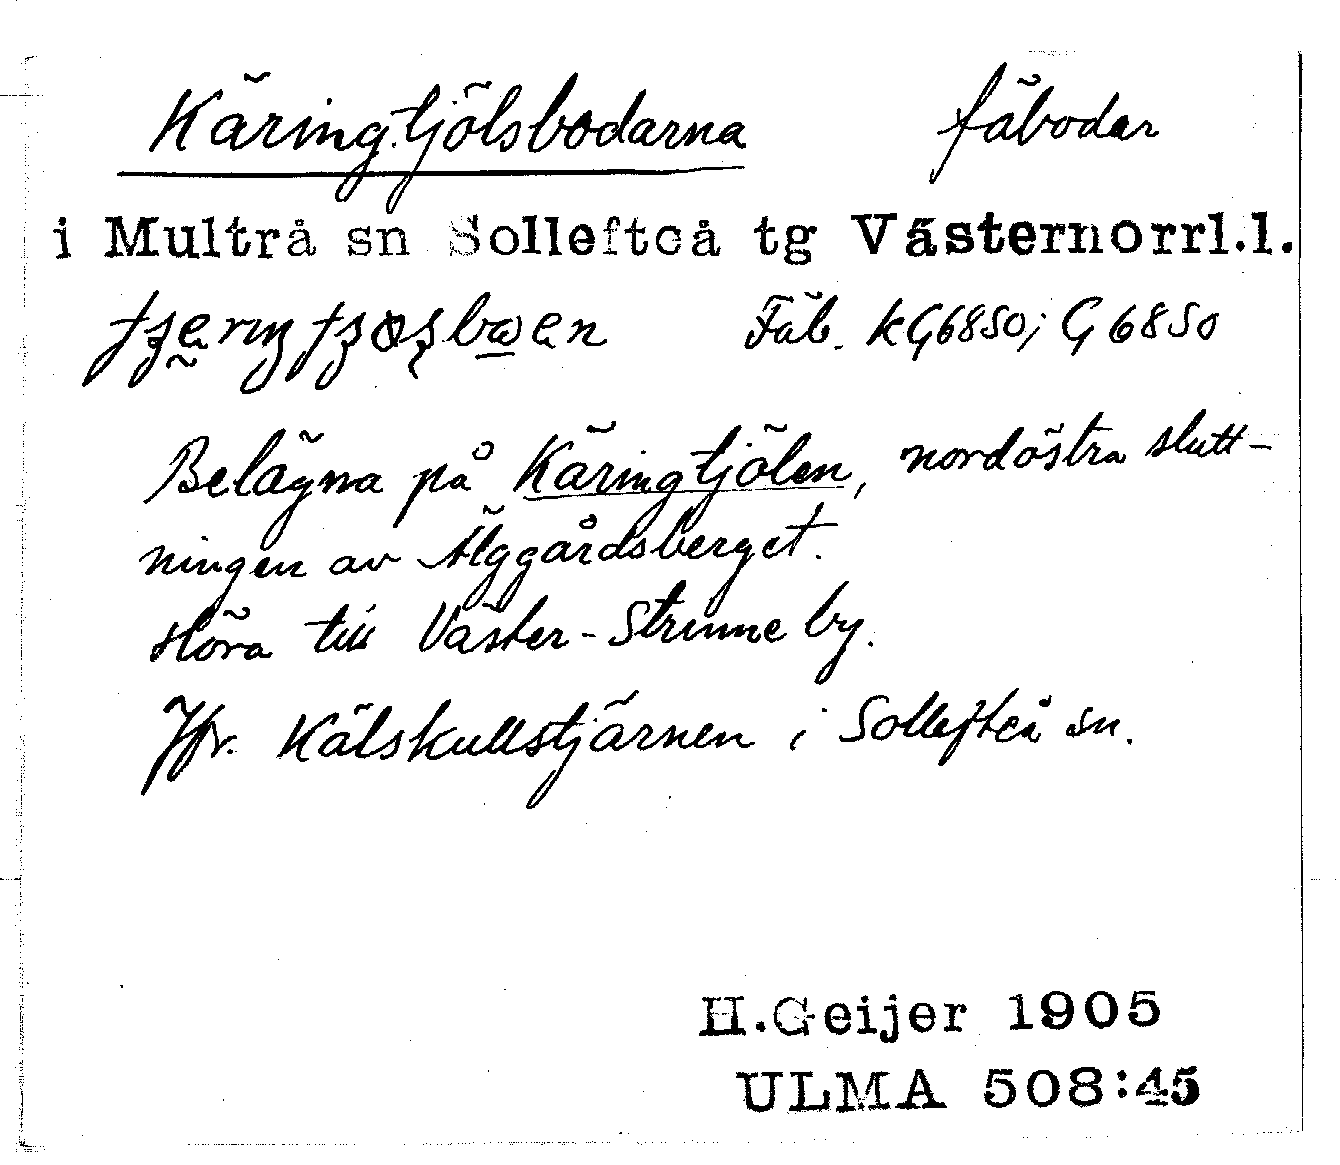 Käringtjölsbodarna fäbodar
i Multrå sn Sollefteå tg Västernorrl.l.
Fäb. KG6850; G 6850
Belägna på Käringtjölen, nordöstra slutt-
ningen av Älggårdsberget.
Höra till Väster-Strinne by.
Jfr. Kälskullstjärnen i Sollefteå sn.
H.Geijer 1905
ULMA 508:45